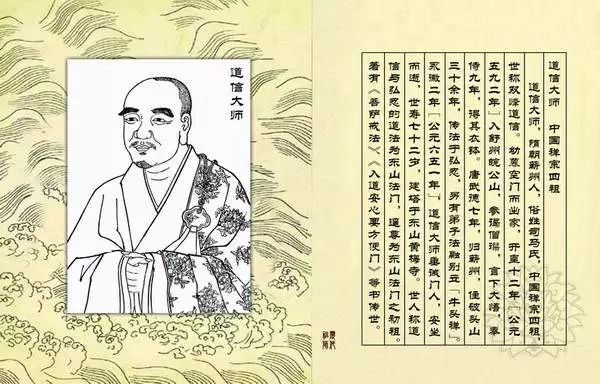 道信大师
道信大师 中国禅宗四祖
道信大师，隋朝蕲州人，俗姓司马氏，中国禅宗四祖，
世称双峰道信。幼慕空门而出家，开皇十二年〔公元
五九二年〕入舒州皖公山，参谒僧璨，言下大悟，奉
侍九年，得其衣钵。唐武德七年，归蕲州，住破头山
三十余年，传法于弘忍，另有弟子法融别立「牛头禅」。
永徽二年〔公元六五一年〕，道信大师垂诫门人，安坐
而逝，世寿七十二岁，建塔于东山黄梅寺。世人称道
信与弘忍的道法为东山法门，遥尊为东山法门之初祖。
著有《菩萨戒法》《入道安心要方便门》等书传世。